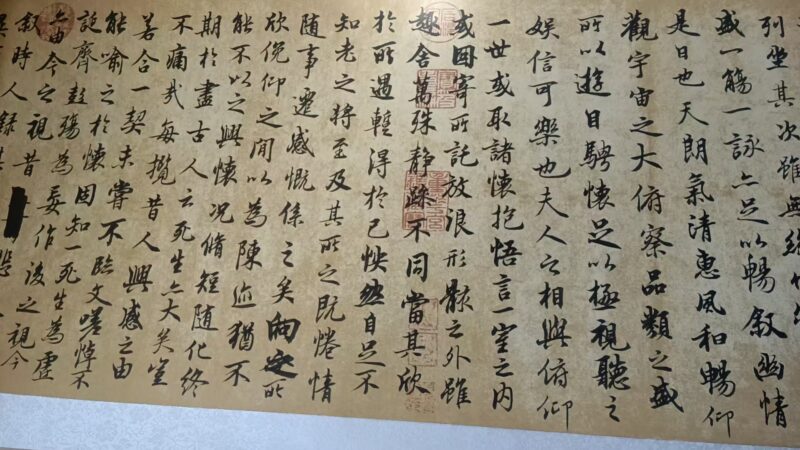 列坐其次雖無
盛一觴一詠亦足以暢敘幽情
是日也天朗氣清惠風和暢仰
觀宇宙之大俯察品類之盛
所以遊目騁懷足以極視聽之
娛信可樂也夫人之相與俯仰
一世或取諸懷抱悟言一室之內
或因寄所託放浪形骸之外雖
趣舍萬殊靜躁不同當其欣
於所遇輒得於己怏然自足不
知老之將至及其所之既惓情
隨事遷感慨係之矣向之所
欣俛仰之間以為陳迹猶不
能不以之興懷況脩短隨化終
期於盡古人云死生亦大矣豈
不痛哉每攬昔人興感之由
若合一契未嘗不臨文嗟悼不
能喻之於懷固知一死生為虛
誕齊彭殤為妄作後之視今
亦由今之視昔悲
敘時人錄其